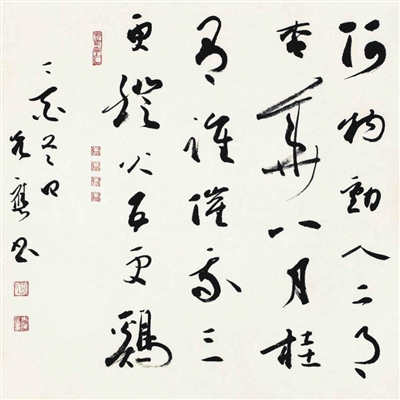 何物動人二月
杏華八月桂
有誰催我三
更燈火五更鷄
書